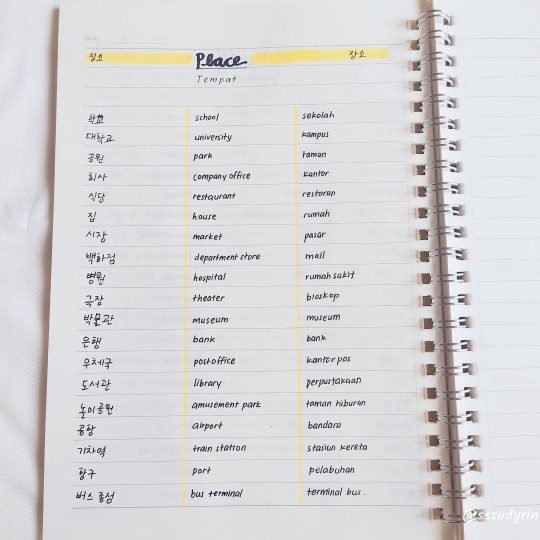 장소 Place 장소
Tempat
학교 school sekolah
대학교 university kampus
공원 park taman
회사 company office kantor
식당 restaurant restoran
집 house rumah
시장 market pasar
백화점 department store mall
병원 hospital rumah sakit
극장 theater bioskop
박물관 museum museum
은행 bank bank
우체국 post office kantor pos
도서관 library perpustakaan
놀이공원 amusement park taman hiburan
공항 airport bandara
기차역 train station stasiun kereta
항구 port pelabuhan
버스 종점 bus terminal terminal bus.
@sstudyrin